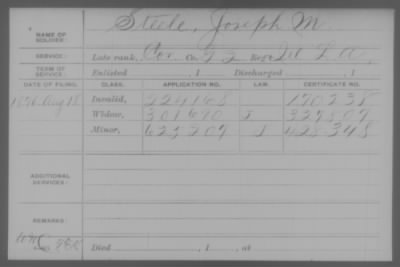 NAME OF SOLDIER: Steele, Joseph M.
SERVICE: Late rank, Cor. Co. Reg't
TERM OF SERVICE: Enlisted , 1 Discharged , 1
DATE OF FILING. CLASS. APPLICATION NO. LAW. CERTIFICATE NO.
1876 Aug 18 Invalid, 224165 170235
Widow, 301670 329807
Minor, 625209 428348
ADDITIONAL SERVICES:
REMARKS:
Died , 1 , at